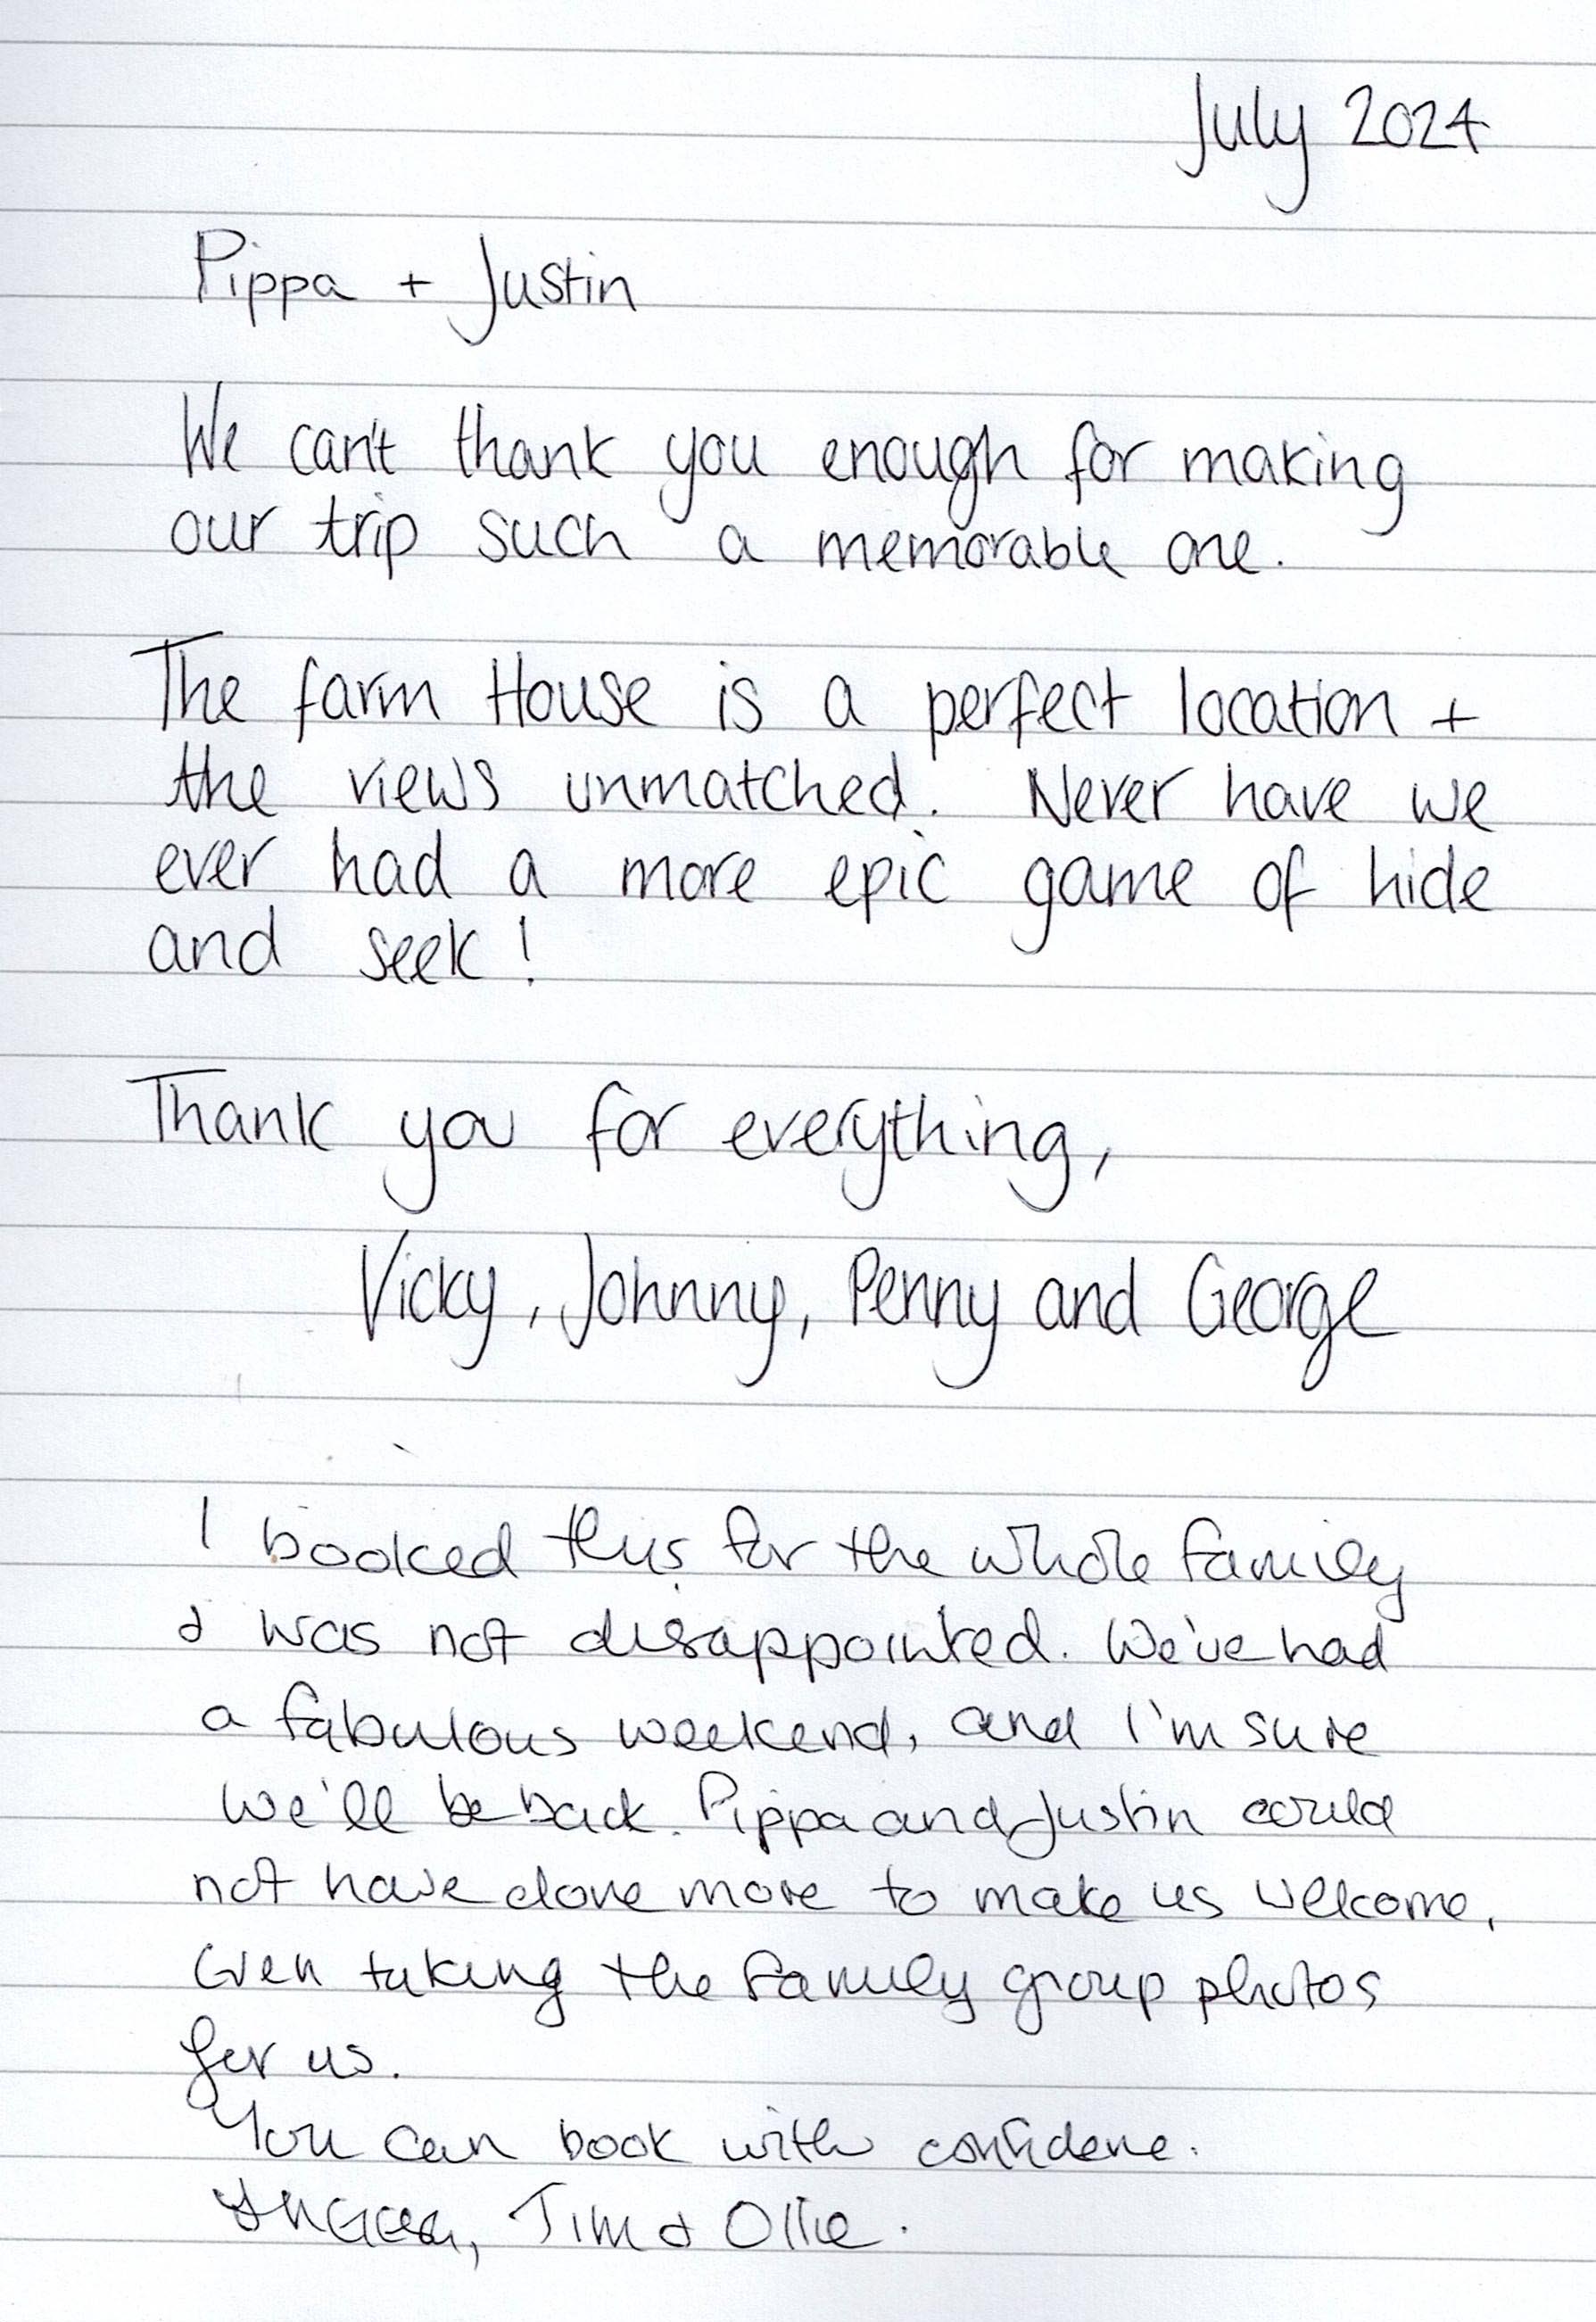 July 2024
Pippa + Justin
We can't thank you enough for making
our trip such a memorable one.
The farm House is a perfect location +
the views unmatched. Never have we
ever had a more epic game of hide
and seek!
Thank you for everything,
Vicky, Johnny, Penny and George
I booked this for the whole family
& was not disappointed. We've had
a fabulous weekend, and I'm sure
we'll be back. Pippa and Justin could
not have done more to make us welcome,
Even taking the family group photos
for us.
You can book with confidence.
Tim & Ollie.